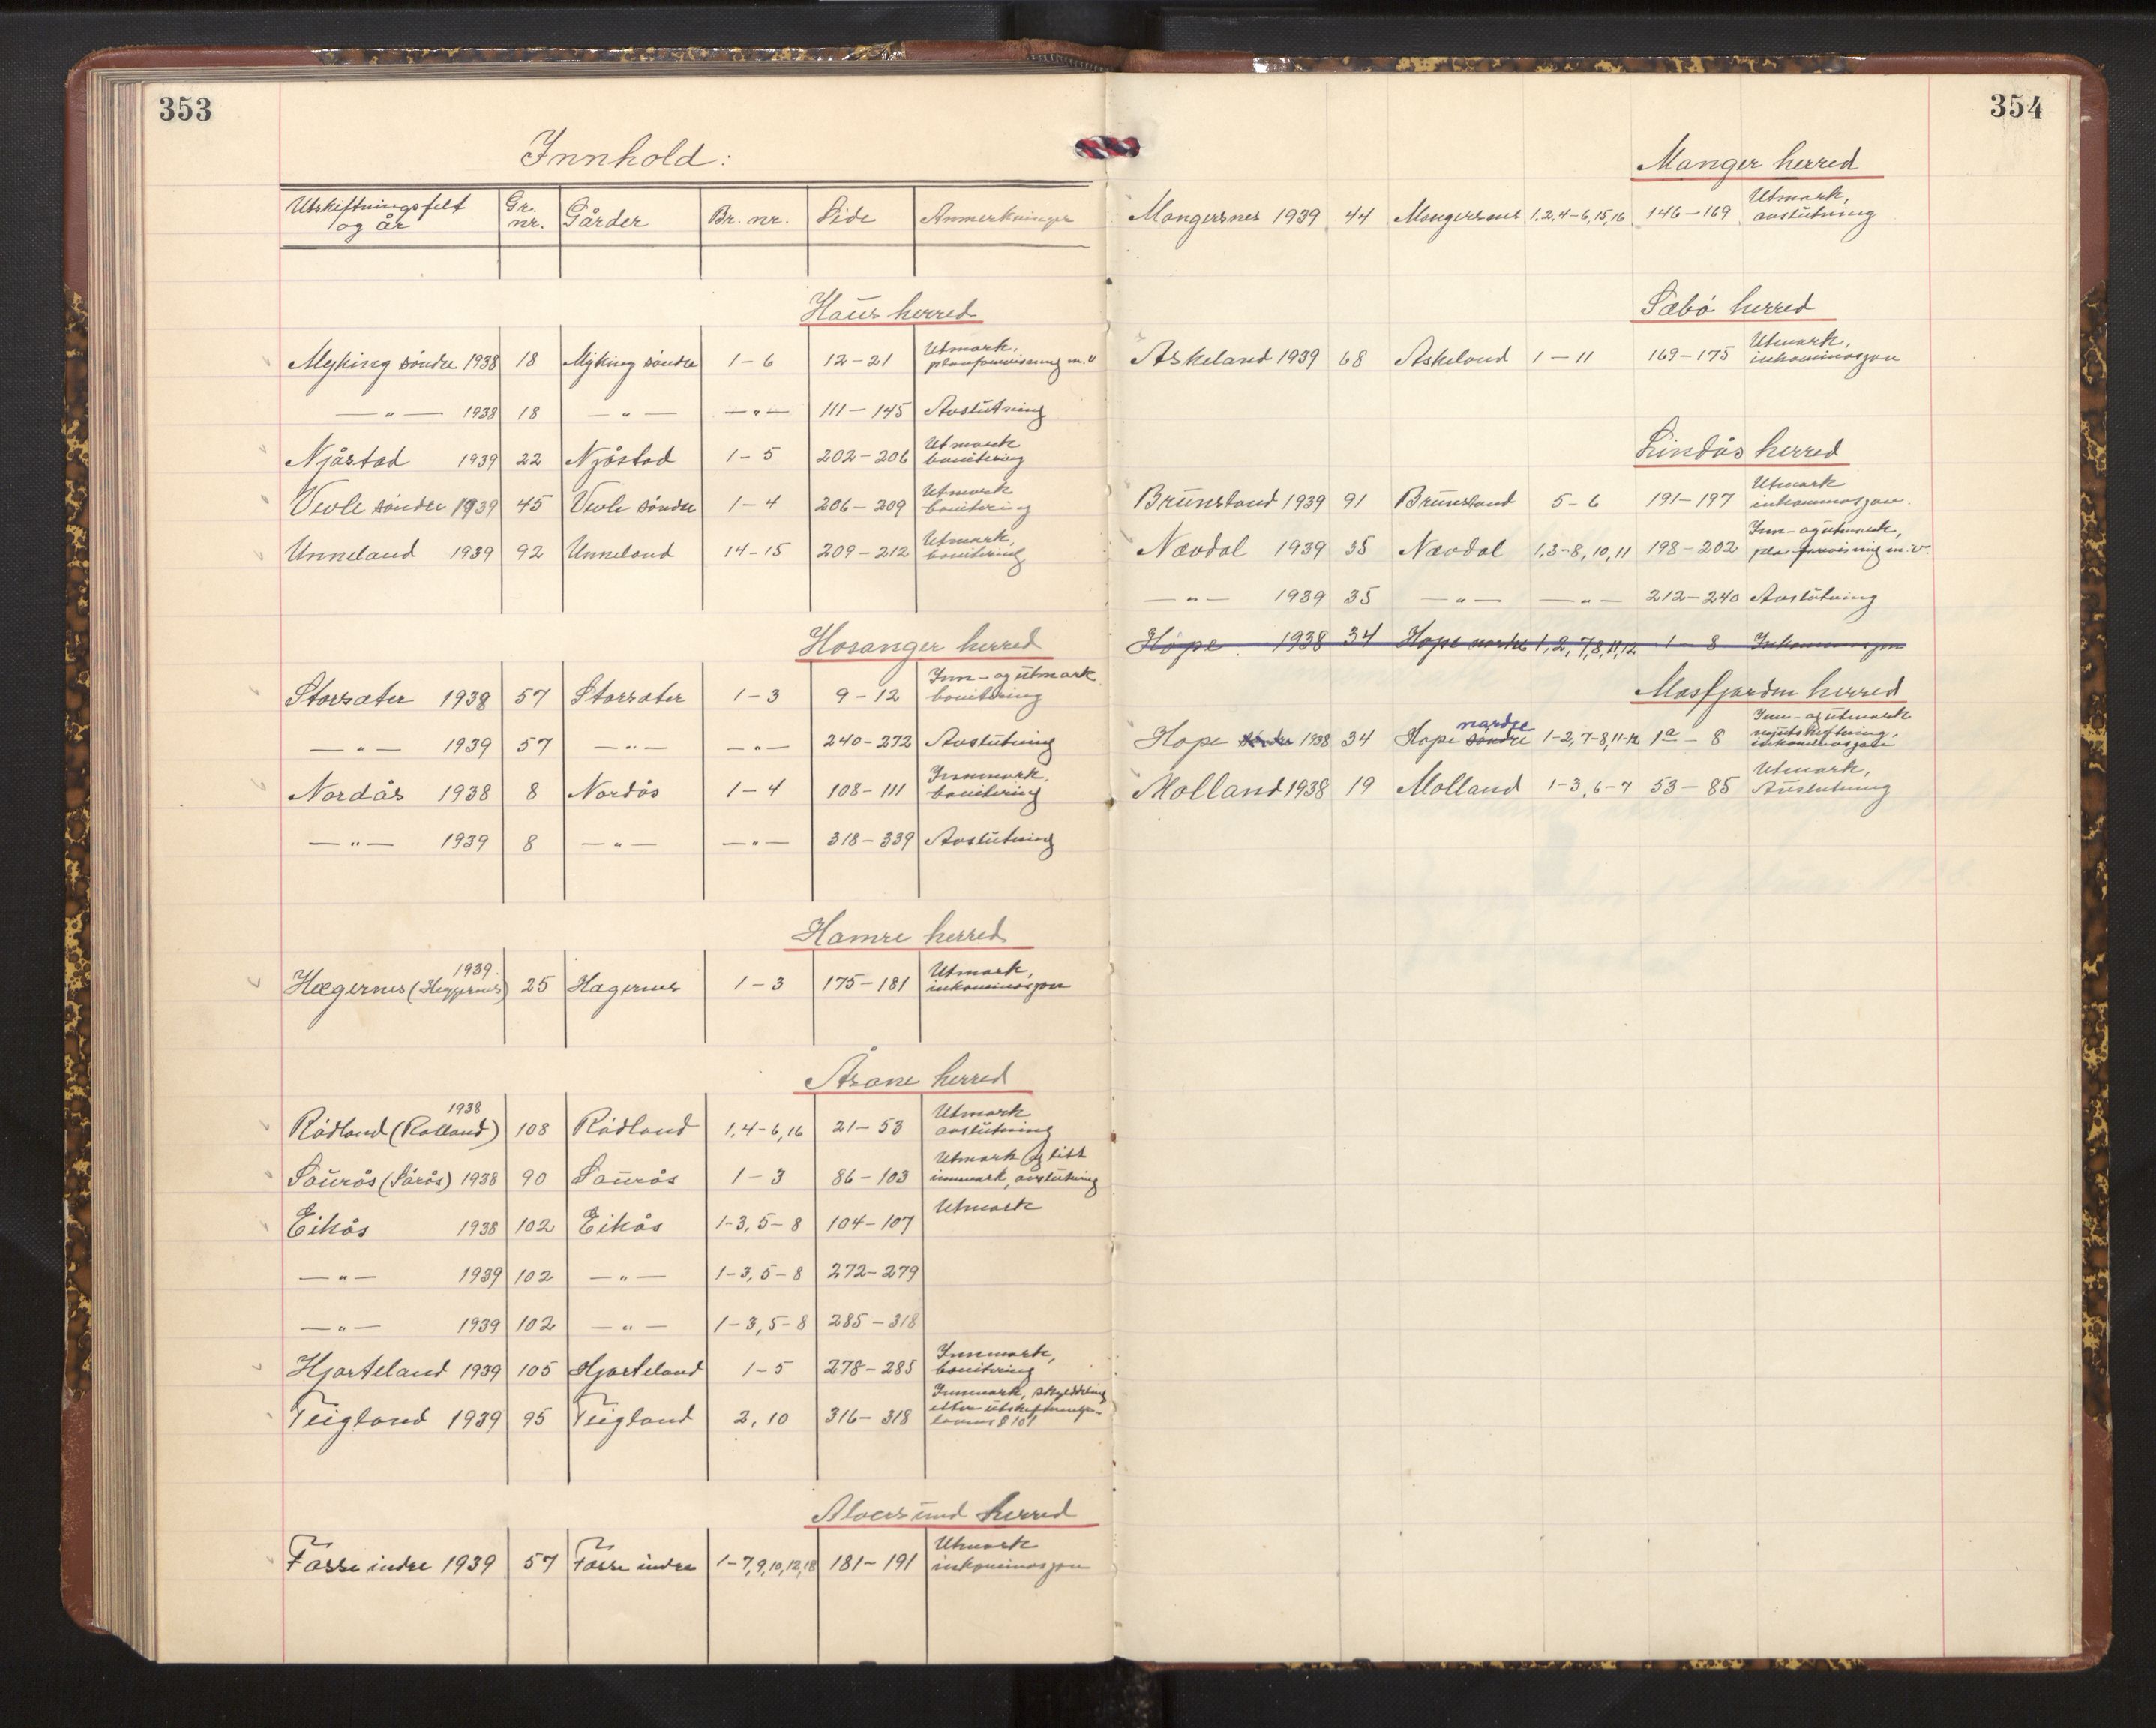 353
Innhold:
Utskiftningsfelt og år | Gr. nr. | Gårder | Br. nr. | Side | Anmerkninger
Haus herred
Myking søndre 1938 | 18 | Myking søndre | 1-6 | 12-21 | Utmark, planforevisning m.v.
— " — 1938 | 18 | — " — | — " — | 111-145 | Avslutning
Njåstad 1939 | 22 | Njåstad | 1-5 | 202-206 | Utmark bonitering
Vevle søndre 1939 | 45 | Vevle søndre | 1-4 | 206-209 | Utmark bonitering
Unneland 1939 | 92 | Unneland | 14-15 | 209-212 | Utmark, bonitering
Hosanger herred
Storsæter 1938 | 57 | Storsæter | 1-3 | 9-12 | Inn- og utmark bonitering
— " — 1939 | 57 | — " — | — " — | 240-272 | Avslutning
Nordås 1938 | 8 | Nordås | 1-4 | 108-111 | Innmark, bonitering
— " — 1939 | 8 | — " — | — " — | 318-339 | Avslutning
Hamre herred
Hægernes (Heggernes) 1939 | 25 | Hægernes | 1-3 | 175-181 | Utmark, inkaminasjon
Åsane herred
Rådland (Rolland) 1938 | 108 | Rådland | 1,4-6,16 | 21-53 | Utmark avslutning
Saurås (Sårås) 1938 | 90 | Saurås | 1-3 | 86-103 | Utmark og litt innmark, avslutning
Eikås 1938 | 102 | Eikås | 1-3, 5-8 | 104-107 | Utmark
— " — 1939 | 102 | — " — | 1-3, 5-8 | 272-279
— " — 1939 | 102 | — " — | 1-3, 5-8 | 285-318
Hjorteland 1939 | 105 | Hjorteland | 1-5 | 278-285 | Innmark, bonitering
Teigland 1939 | 95 | Teigland | 2, 10 | 316-318 | Innmark, skylddeling etter utskiftnings- lovens § 101
Alversund herred
Fosse indre 1939 | 57 | Fosse indre | 1-7,9,10,12,18 | 181-191 | Utmark inkaminasjon
354
Manger herred
Mangersnes 1939 | 44 | Mangersnes | 1,2,4-6,15,16 | 146-169 | Utmark, avslutning
Sæbø herred
Askeland 1939 | 68 | Askeland | 1-11 | 169-175 | Utmark, inkaminasjon
Lindås herred
Brunsland 1939 | 91 | Brunsland | 5-6 | 191-197 | Utmark inkaminasjon.
Nævdal 1939 | 35 | Nævdal | 1,3-8,10,11 | 198-202 | Inn- og utmark, planforevisning m.v.
— " — 1939 | 35 | — " — | — " — | 212-240 | Avslutning
Hope 1938 | 34 | Hope nordre | 1,2,7,8,11,12 | 1-8 | Inkaminasjon
Masfjorden herred
Hope 1938 | 34 | Hope søndre nordre | 1-2, 7-8, 11-12 | 1a-8 | Inn- og utmark inkaminasjon
Molland 1938 | 19 | Molland | 1-3, 6-7 | 53-85 | Utmark, Avslutning